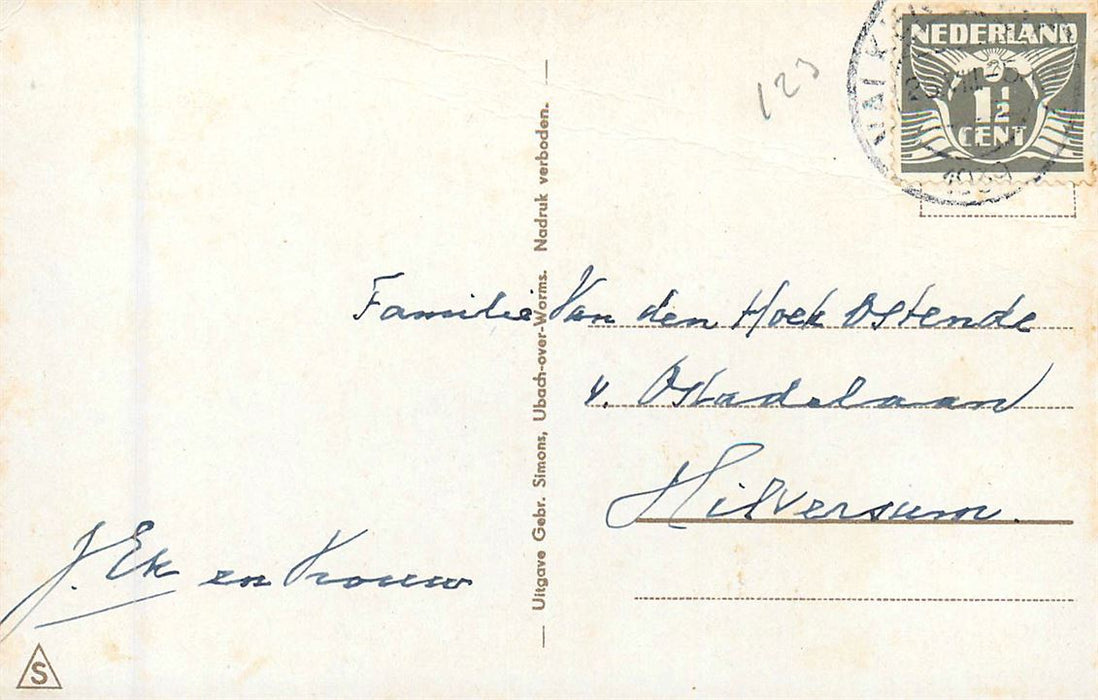 123
NEDERLAND
1½
CENT
1939
Familie Van den Hoek Ostende
v. Ostadelaan
Hilversum.
J. Ek en Vrouw
Uitgave Gebr. Simons, Ubach-over-Worms. Nadruk verboden.
S